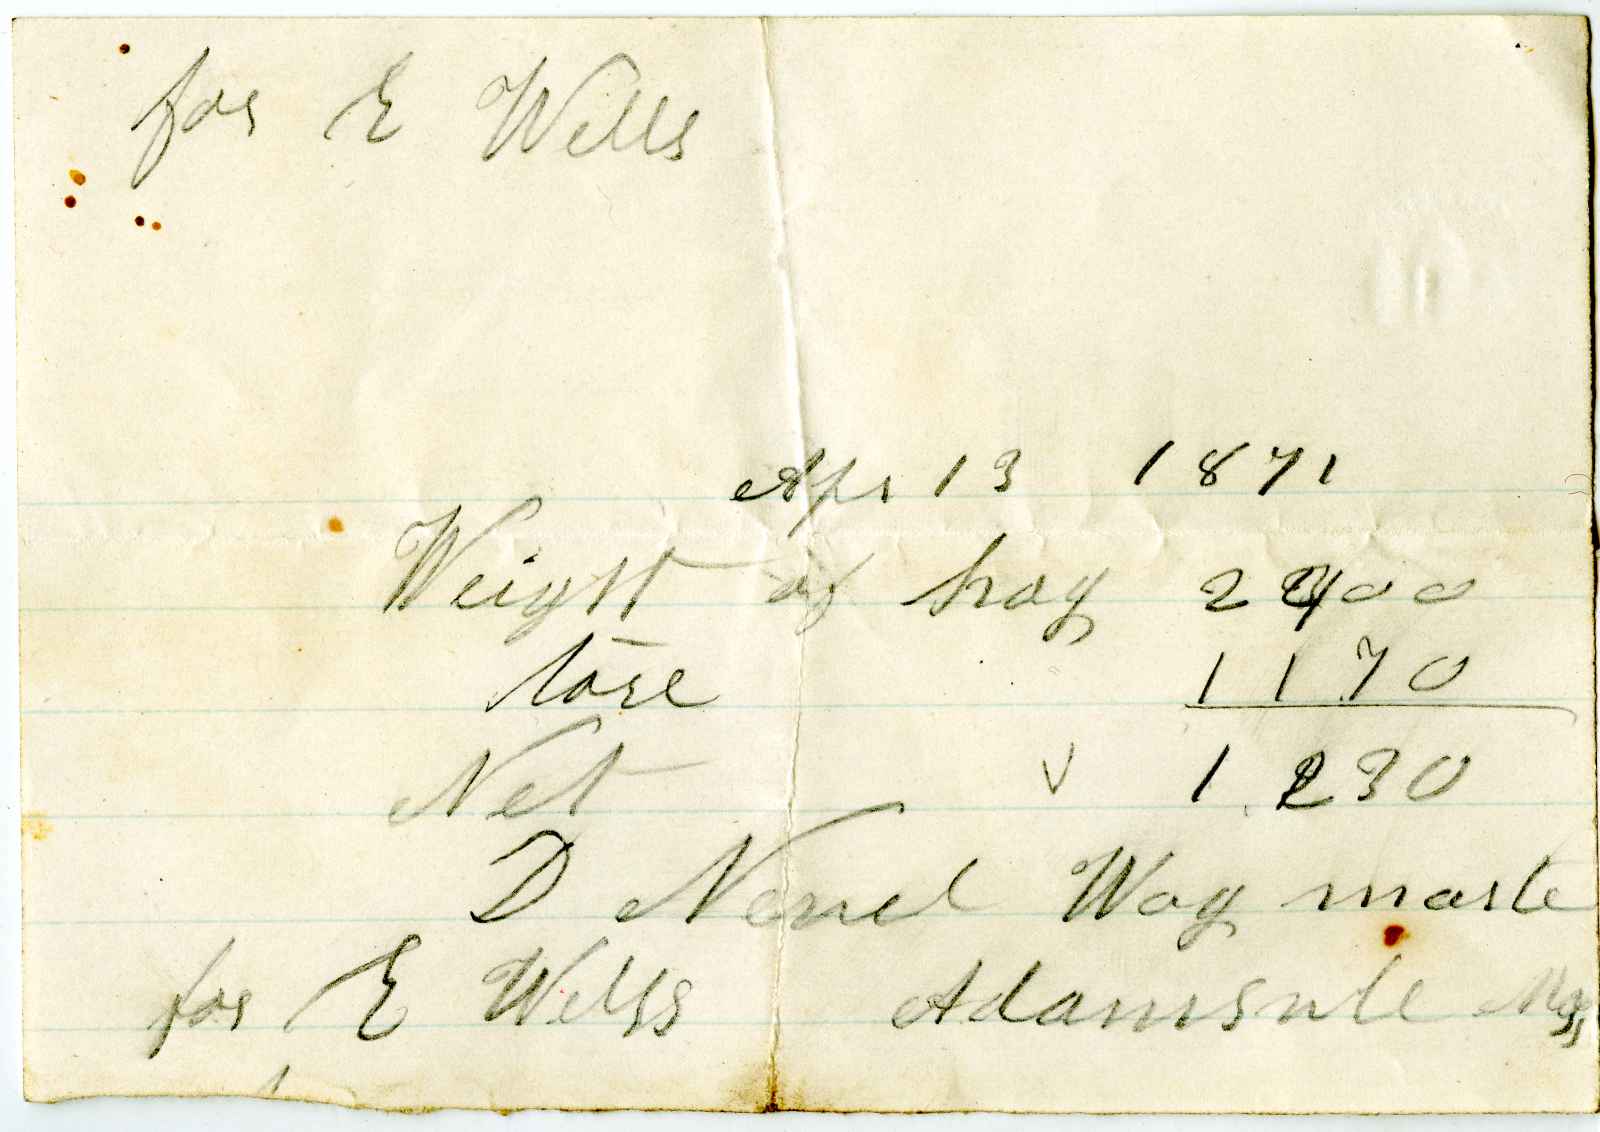 for E Wells
Apr 13 1871
Weight of hay 2400
tare 1170
Net √ 1230
D Nenel Way maste
for E Wells Adamsvile Mass